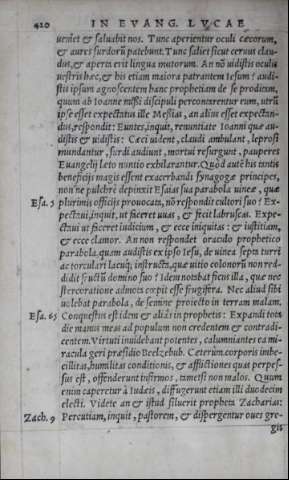 420 IN EVANG. LVCAE
ueniet & saluabit nos. Tunc aperientur oculi cæcorum,
& aures surdorũ patebunt. Tunc saliet sicut ceruus clau-
dus, & aperta erit lingua mutorum. An nõ uidistis oculis
uestris hæc, & his etiam maiora patrantem Iesum? audi-
stis ipsum agnoscentem hanc prophetiam de se proditam,
quum ab Ioanne missi discipuli percontarentur eum, utrũ
ipse esset expectatus ille Messias, an alius esset expectan-
dus, respondit: Euntes, inquit, renuntiate Ioanni quæ au-
distis & uidistis: Cæci uident, claudi ambulant, leprosi
mundantur, surdi audiunt, mortui resurgunt, pauperes
Euangelij læto nuntio exhilarantur. Quòd autẽ his tantis
beneficijs magis essent exacerbandi synagogæ principes,
non'ne pulchrè depinxit Esaias sua parabola uineæ, quæ
Esa. 5 plurimis officijs prouocata, nõ respondit cultori suo? Ex-
pectaui, inquit, ut faceret uuas, & fecit labruscas. Expe-
ctaui ut faceret iudicium, & ecce iniquitas: & iustitiam,
& ecce clamor. An non respondet oraculo prophetico
parabola, quam audistis ex ipso Iesu, de uinea septa turri
ac torculari lacuq; instructa, quæ uitio colonorũ non red-
didit fructũ domino suo? Idem notabat ficus illa, quæ nec
stercoratione admota cœpit esse frugifera. Nec aliud sibi
uolebat parabola, de semine proiecto in terram malam.
Esa. 65 Conquestus est idem & aliàs in prophetis: Expandi tota
die manus meas ad populum non credentem & contradi-
centem. Virtuti inuidebant potentes, calumniantes ea mi-
racula geri præsidio Beelzebub. Cæterum corporis imbe-
cillitas, humilitas conditionis, & afflictiones quas perpes-
sus est, offenderunt infirmos, tametsi non malos. Quum
enim caperetur à Iudæis, diffugerunt etiam illi duodecim
electi. Videte an & istud siluerit propheta Zacharias:
Zach. 9 Percutiam, inquit, pastorem, & dispergentur oues gre-
gis